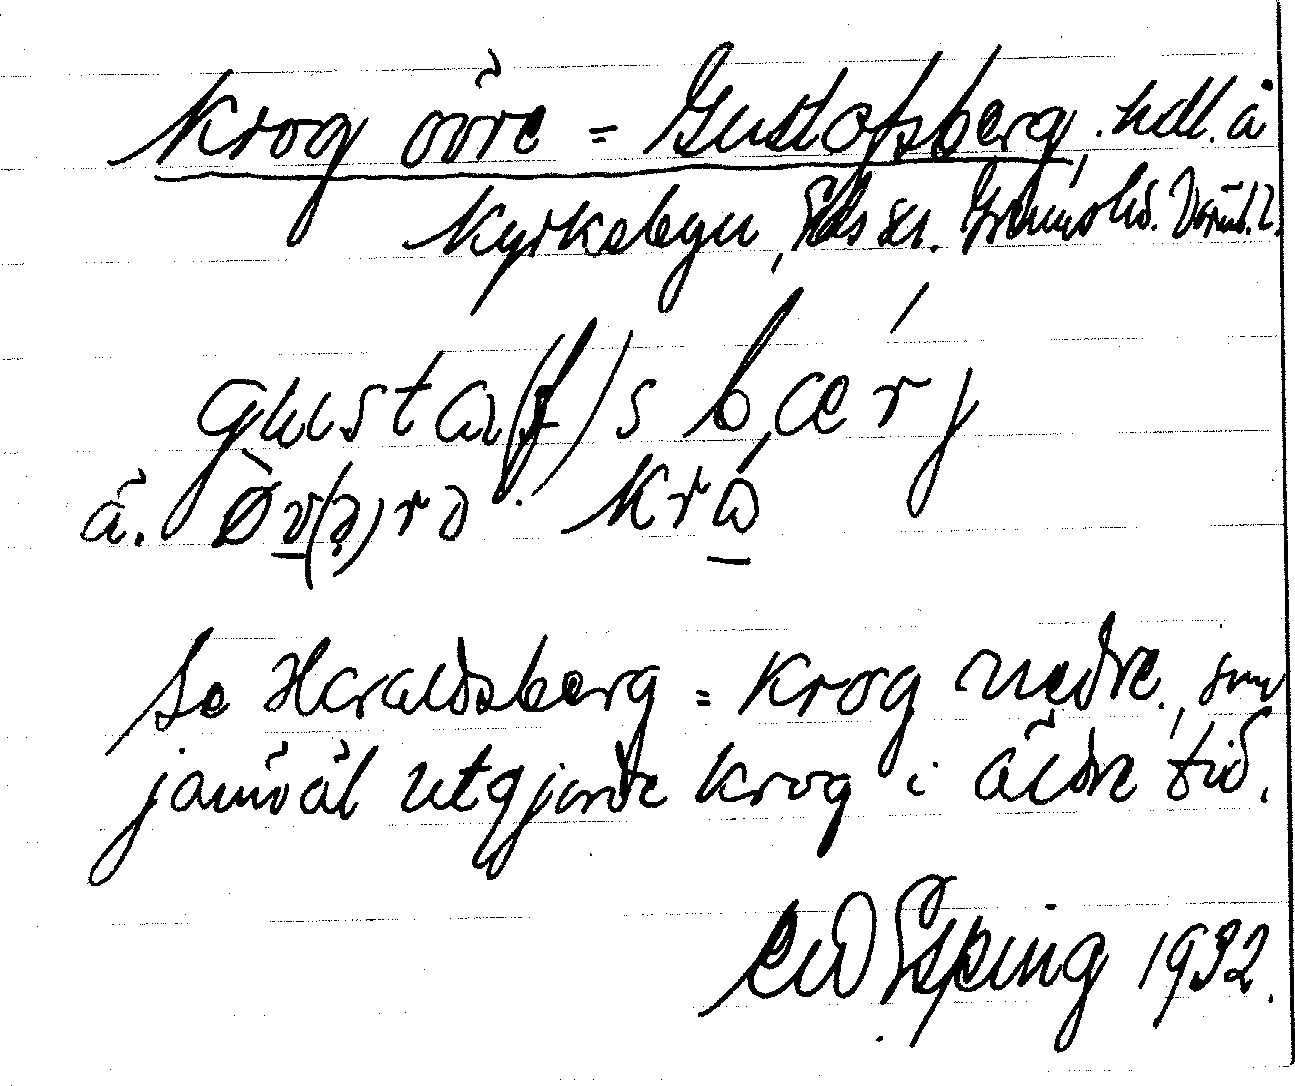 Krog övre = Gustafsberg, hdl. å
Kyrkebyn, Eds sn. Grums hd. Värml. l.
gustа(f)s bærj
ä. øv(ə)rə krɷ
Se Haraldsberg = Krog nedre, som
jämväl utgjorde Krog i äldre tid.
Esping 1932.